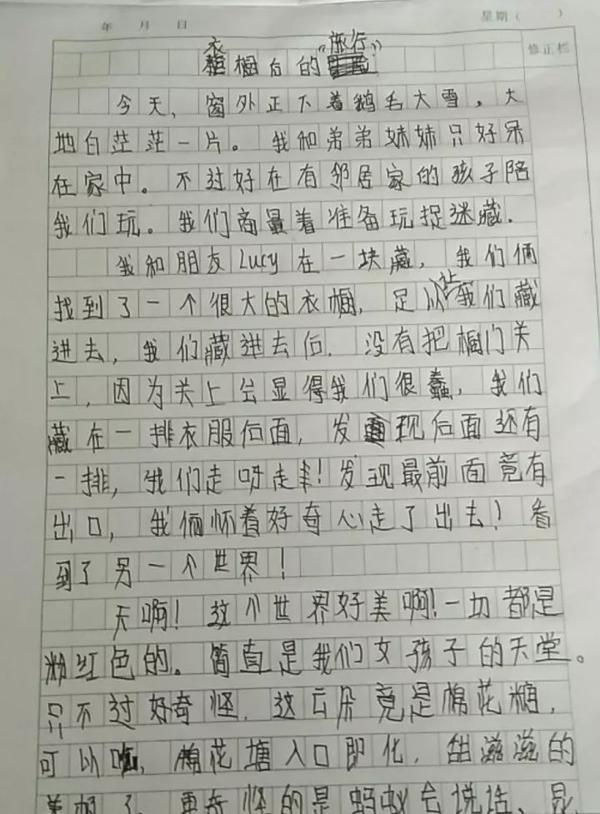 年 月 日 星期( )
修正栏
衣橱后的"旅行"
今天,窗外正下着鹅毛大雪,大
地白茫茫一片。我和弟弟妹妹只好呆
在家中。不过好在有邻居家的孩子陪
我们玩。我们商量着准备玩捉迷藏.
我和朋友Lucy在一块藏,我们俩
找到了一个很大的衣橱,足以让我们藏
进去,我们藏进去后,没有把橱门关
上,因为关上会显得我们很蠢,我们
藏在一排衣服后面,发现后面还有
一排,我们走呀走!发现最前面竟有
出口,我俩怀着好奇心走了出去!看
到了另一个世界!
天啊!这个世界好美啊!一切都是
粉红色的。简直是我们女孩子的天堂。
只不过好奇怪,这云朵竟是棉花糖,
可以吃,棉花塘入口即化,甜滋滋的
美极了,更奇怪的是蚂蚁会说话,